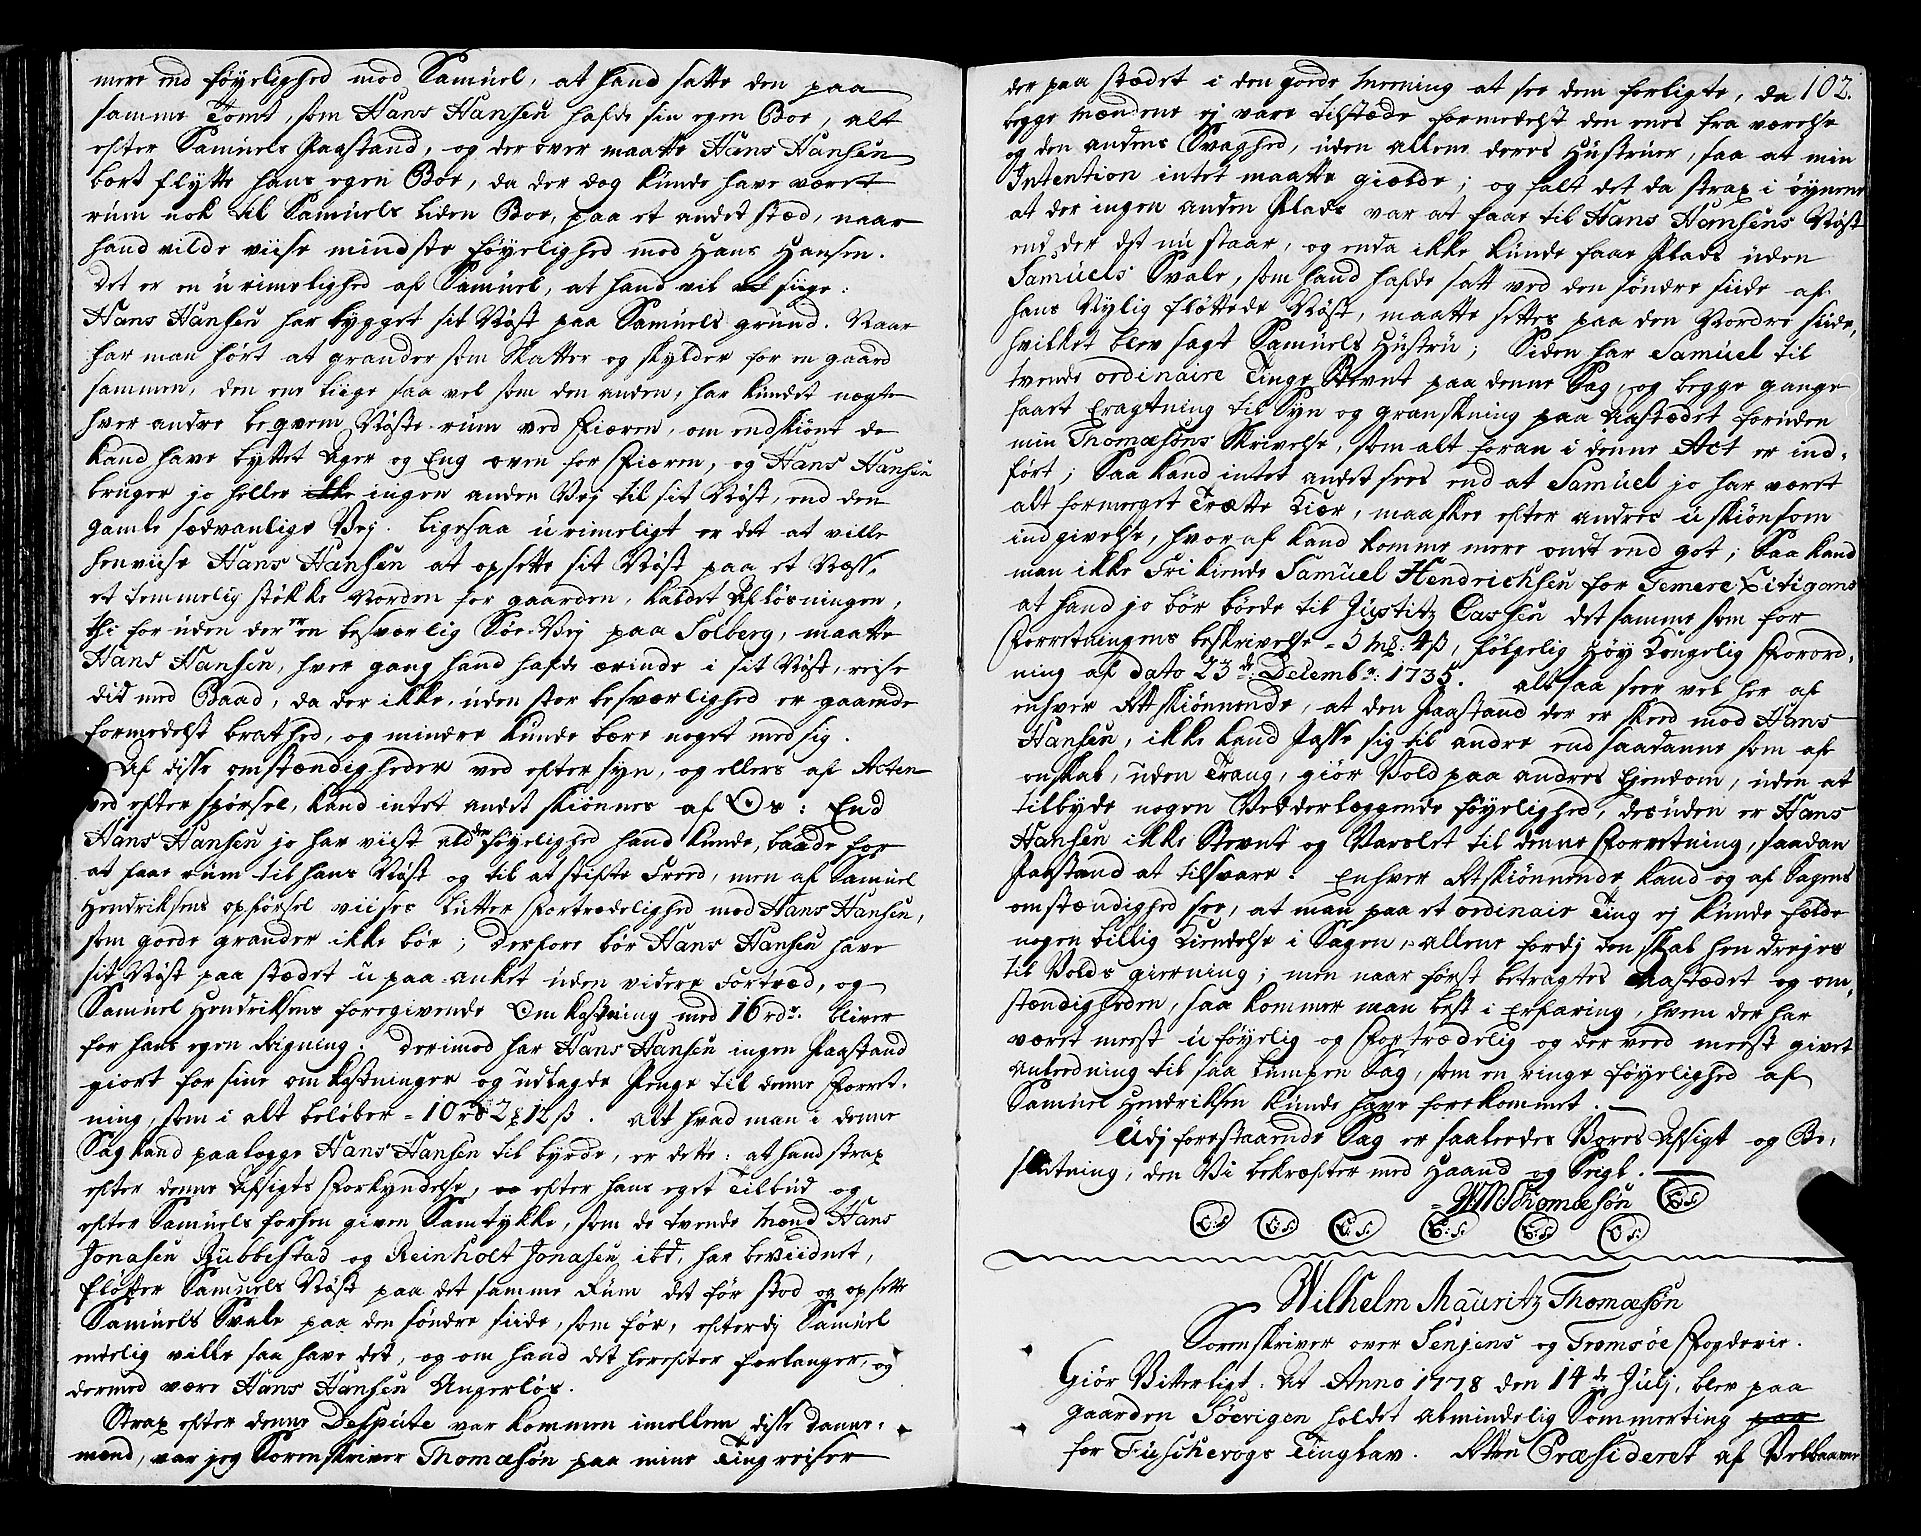 mere end føyelighed mod Samuel, at hand satte den paa
samme Tomt, som Hans Hansen hafde sin egen Boe, alt
efter Samuels Paastand, og der over maatte Hans Hansen
bort flytte hans egen Boe, da der dog kunde have været
rum nok til Samuels liden Boe, paa et andet stæd, naar
hand vilde viise mindste føyelighed mod Hans Hansen.
Det er en urimelighed af Samuel, at hand vil siige:
Hans Hansen har bygget sit Nøst paa Samuels grund. Naar
har man hørt at grander som Skatter og skylder for en gaard
sammen, den ene liige saa vel som den anden, har kundet nægte
hver andre beqvem Nøste-rum ved Fiæren, om endskiønt de
kand have byttet Ager og Eng oven for Fiæren, og Hans Hansen
bruger jo heller ingen anden Vej til sit Nøst, end den
gamle sædvanlige Vej. Ligesaa urimeligt er det at ville
henviise Hans Hansen at opsette sit Nøst paa et Næss,
et temmelig støkke Norden for gaarden, kaldet Afløsningen,
thi for uden der er en besværlig Søe-Vej paa Solberg, maatte
Hans Hansen, hver gang hand hafde ærinde i sit Nøst, reise
did med Baad, da der ikke, uden stor besværlighed er gaaende
formedelst brathed, og mindre kunde bære noget med sig.
Af disse omstændigheder ved efter syn, og ellers af Acten
ved efter spørsel, kand intet andet skiønnes af Os: End
Hans Hansen jo har viist all den føyelighed hand kunde, baade for
at faae rum til hans Nøst og til at stifte Freed, men af Samuel
Hendriksens opførsel viises lutter Fortrædelighed mod Hans Hansen,
som goede grander ikke bør; Derfore bør Hans Hansen have
sit Nøst paa stædet upaa-anket uden videre Fortræd, og
Samuel Hendriksens foregivende Omkostning med 16 rdr. bliver
for hans egen Rigning. Derimod har Hans Hansen ingen Paastand
giort for sine omkostninger og udlagde Penge til denne Forret-
ning, som i alt beløber = 10 rd 2 ℔ 12 ß. Alt hvad man i denne
Sag kand paalægge Hans Hansen til byrde, er dette: at hand strax
efter denne Afsigts Forkyndelse, efter hans eget Tilbud og
efter Samuels forhen given Samtykke, som de tvende Mend Hans
Jonasen Rubbestad og Reinholt Jonasen ibd, har beviidnet,
fløtter Samuels Nøst paa det samme Rum det før stod og opsette
Samuels Svale paa den søndre siide, som før, efterdj Samuel
endelig ville saa have det, og om hand det herefter forlanger, og
dermed være Hans Hansen Angerløs.
Strax efter denne Dispute var kommen imellem disse Danne-
mend, var jeg Sorenskriver Thomæsøn paa mine Ting reiser
102.
der paa stædet i den goede Meening at see dem forligte, da
begge Mændene ej vare tilstæde formedelst den enes fra værelse
og den andens Svaghed, uden allene deres Hustruer, saa at min
Intention intet maatte giælde; og falt det da strax i øynene
at der ingen anden Plads var at faae til Hans Hansens Nøst
end der det nu staar, og enda ikke kunde faae Plads uden
Samuels Svale, som hand hafde satt ved den søndre siide af
hans Nylig fløttede Nøst, maatte settes paa den Nordre siide,
hvilket blev sagt Samuels Hustru; Siden har Samuel til
tvende ordinaire Tinge Stevnt paa denne Sag, og begge gange
faaet Eragtning til Syn og granskning paa Aastædet foruden
min Thomæsøns Skrivelse, som alt foran i denne Act er ind-
ført; Saa kand intet andet sees end at Samuel jo har været
alt formeget Trætte kiær, maaskee efter andres uskiønsom
indgivelse, hvoraf kand komme mere ondt end got; Saa kand
man ikke Frikiende Samuel Hendrichsen for Temere Litigans
at hand jo bør bøede til Justitz Cassen det samme som for
Forretningens beskrivelse = 3 M: 4 ß, følgelig Høy Kongelig Forord-
ning af dato 23de Decembr: 1735. Altsaa seer vel her af
enhver Retskiønnende, at den Paastand der er skeed mod Hans
Hansen, ikke kand Passe sig til andre end saadanne som af
ondskab, uden Trang, giør Vold paa andres Ejendom, uden at
tilbyde nogen Vedderlæggende føyelighed, desuden er Hans
Hansen ikke Stevnt og Varslet til denne Forretning, saadan
Paastand at tilsvare. Enhver Retskiønnende kand og af Sagens
omstændighed see, at man paa et ordinair Ting ej kunde fælde
nogen billig Kiendelse i Sagen, allene fordj den skal hen drejes
til Volds gierning; men naar først betragtes Aastædet og om-
stændigheden, saa kommer man best i Erfaring, hvem der har
været meest uføyelig og Fortrædelig og der ved meest givet
Anleedning til saa lumpen Sag, som en ringe føyelighed af
Samuel Hendriksen kunde have forekommet.
Udj forestaaende Sag er saaleedes Vores Afsigt og Be-
slutning, den Vi bekræfter med Haand og Seigl.
W M Thomæsøn (L:S:)
(L:S:) (L:S:) (L:S:) (L:S:) (L:S:) (L:S:)
Wilhelm Mauritz Thomæsøn
Sorenskriver over Senjens og Tromsøe Fogderie.
Giør Vitterligt: At Anno 1778 den 14de Julj, blev paa
gaarden Soerigen holdet almindelig Sommerting paa
for Tuscherogs Tinglav. Retten Præsideret af Velbaarne